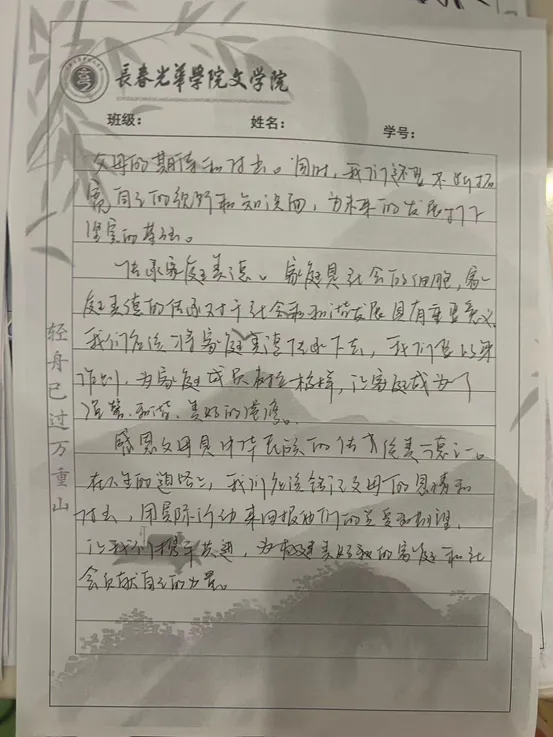 長春光華學院文學院
班级： 姓名： 学号：
父母的期待和付出。同时，我们还要不断拓
宽自己的视野和知识面，为未来的发展打下
坚实的基础。
传承家庭美德。家庭是社会的细胞，家
庭美德的传承对于社会和谐发展具有重要意义
我们应该将家庭美德传承下去，我们要以身
作则，为家庭成员树立榜样，让家庭成为
温馨、和谐、美好的港湾。
感恩父母是中华民族的传统美德之一。
在人生的道路上，我们应该铭记父母的恩情和
付出，用实际行动来回报他们的关爱和期望，
让我们携手共进，为构建美好的家庭和社
会贡献自己的力量。
轻舟已过万重山